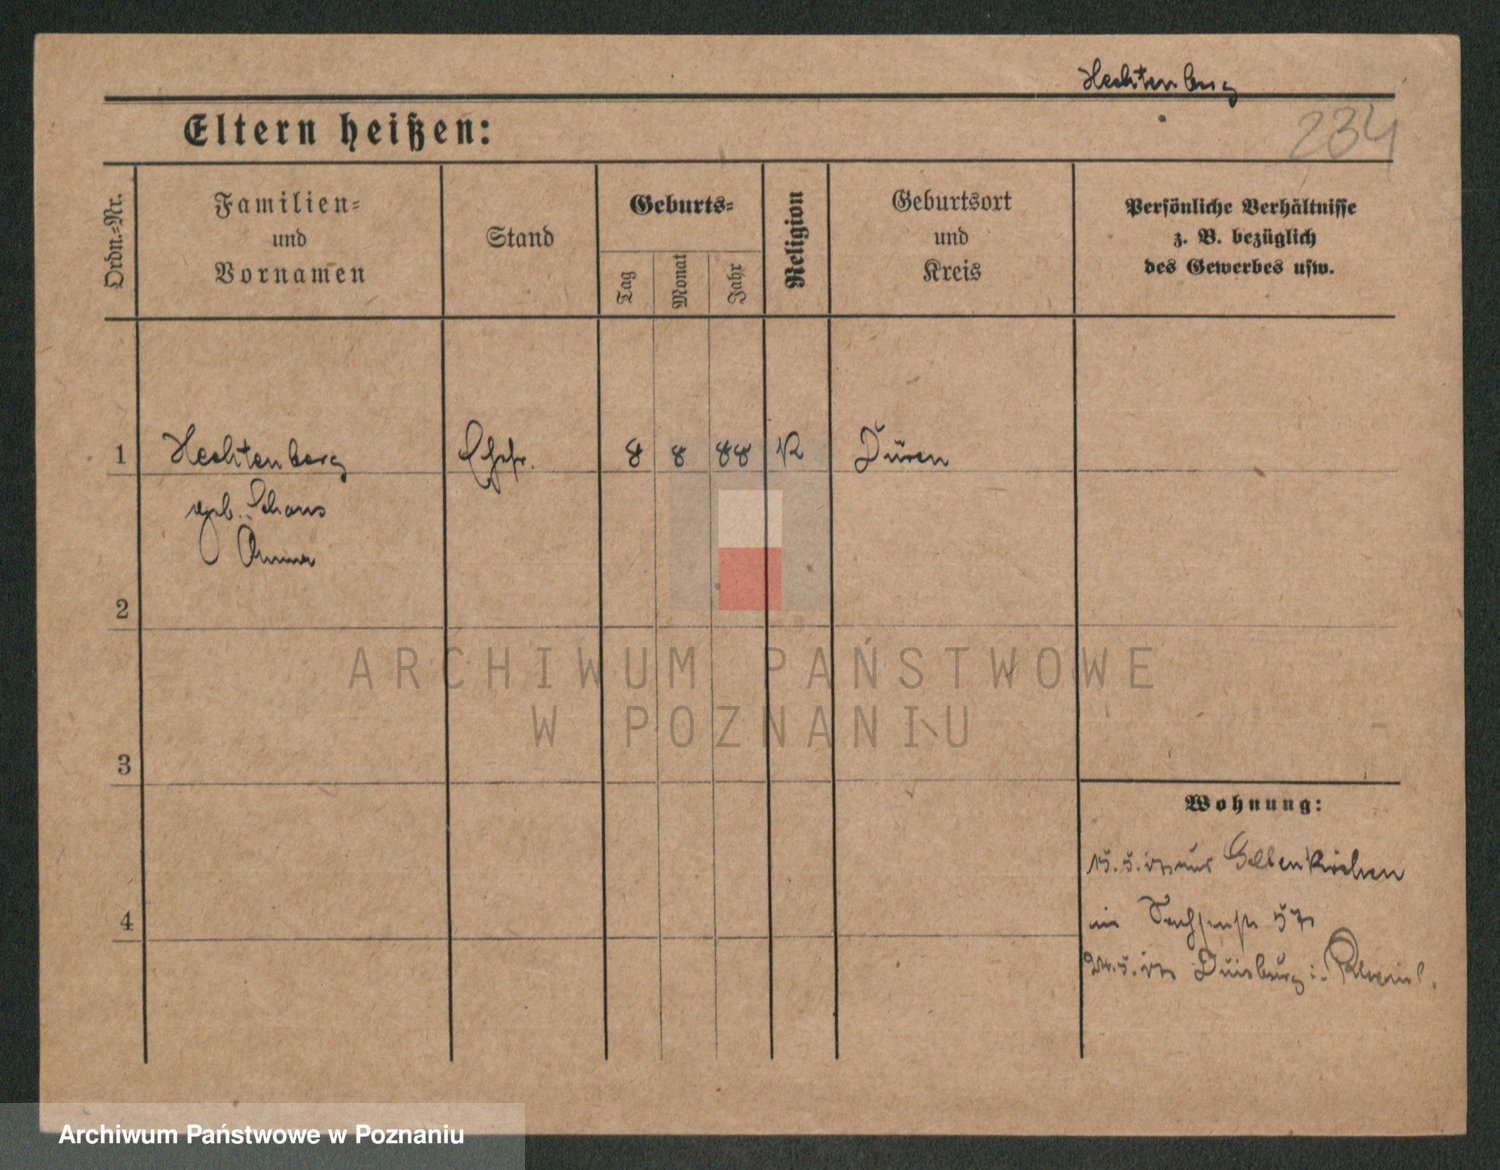 Hechtenberg
234
Eltern heißen:
Ordn.=Nr.
Familien=
und
Vornamen
Stand
Geburts=
Tag
Monat
Jahr
Religion
Geburtsort
und
Kreis
Persönliche Verhältnisse
z. B. bezüglich
des Gewerbes usw.
1 Hechtenberg Ehefr. 8 8 88 K Düren
geb. Schaus
Anna
2
3
4
Wohnung:
15.5. aus Gelsenkirchen
24.5. Duisburg i.
ARCHIWUM PAŃSTWOWE
W POZNANIU
Archiwum Państwowe w Poznaniu